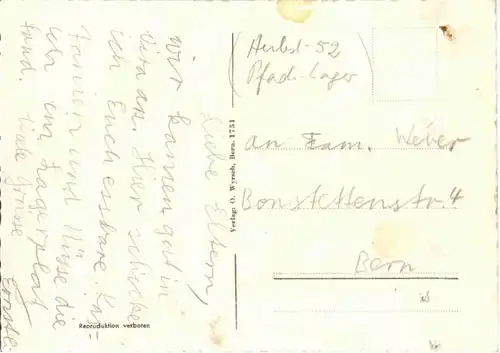 Liebe Eltern,
wir kamen gut in
Vira an. Hier schicke
ich Euch essbare Kas=
tanien und Nüsse die
ich am Lagerplatz
fand.
Viele Grüsse
Reproduktion verboten
Verlag: O. Wyrsch, Bern. 1751
(Herbst-52
Pfad-Lager)
an Fam. Weber
Bonstettenstr. 4
Bern